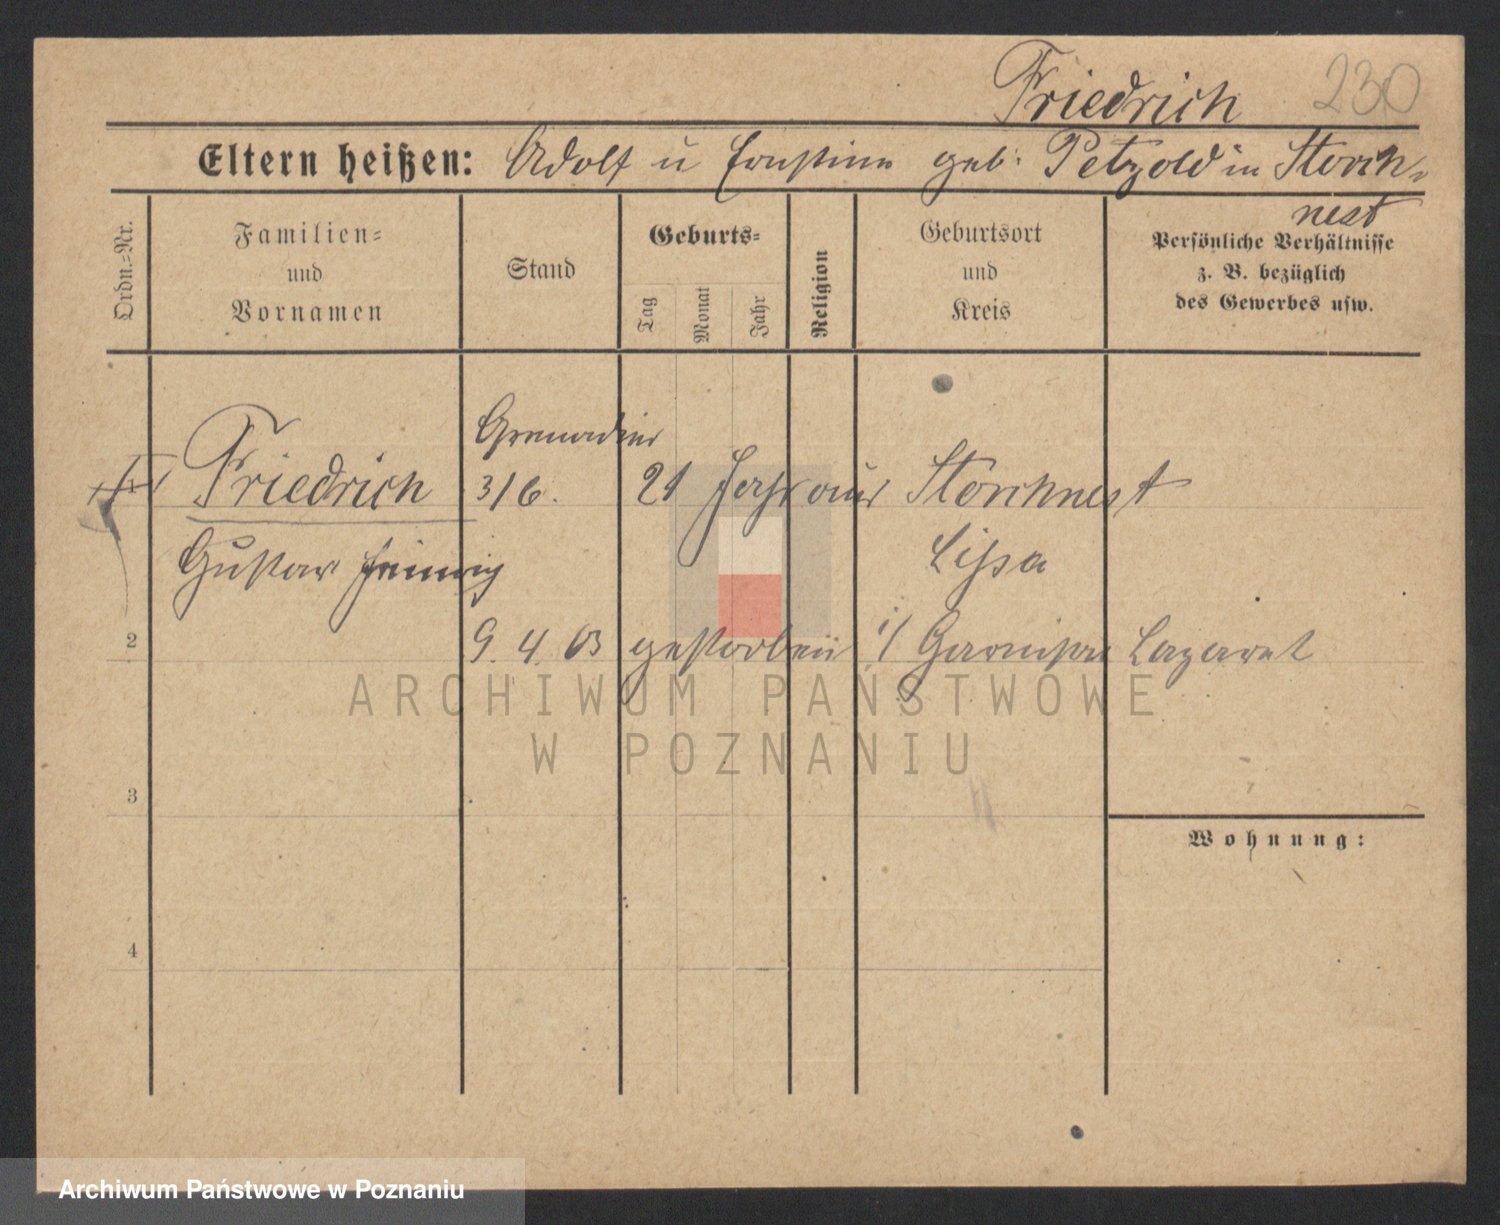 Friedrich 230
Eltern heißen: Adolf u Ernstine geb. Petzold in Storch-
nest
Ordn.=Nr.
Familien=
und
Vornamen
Stand
Geburts=
Tag
Monat
Jahr
Religion
Geburtsort
und
Kreis
Persönliche Verhältnisse
z. B. bezüglich
des Gewerbes usw.
Grenadier
1 Friedrich 3/6. 21 Jahr aus Storchnest
Gustav Heinrich Lissa
2 9. 4. 03 gestorben i/ Garnison Lazaret
ARCHIWUM PAŃSTWOWE
W POZNANIU
3
Wohnung:
4
Archiwum Państwowe w Poznaniu